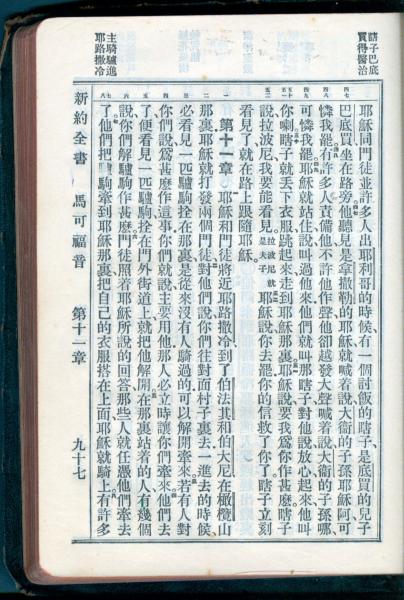 瞎子巴底
買得醫治
耶穌同門徒並許多人出耶利哥的時候、有一個討飯的瞎子、是底買的兒子
巴底買坐在路旁、他聽見是拿撒勒的耶穌、就喊着說、大衞的子孫耶穌阿、可
憐我罷、有許多人責備他、不許他作聲、他卻越發大聲喊着說、大衞的子孫哪、
可憐我罷、耶穌就站住、說、叫過他來、他們就叫那瞎子、對他說、放心起來、他叫
你喇、瞎子就丟下衣服、跳起來、走到耶穌那裏、耶穌說、要我爲你作甚麼、瞎子
說、拉波尼、我要能看見、拉波尼就是夫子耶穌說、你去罷、你的信救了你了、瞎子立刻
看見了、就在路上跟隨耶穌。
第十一章 耶穌和門徒將近耶路撒冷、到了伯法其和伯大尼、在橄欖山
那裏、耶穌就打發兩個門徒、對他們說、你們往對面村子裏去、一進去的時候、
必看見一匹驢駒拴在那裏、是從來沒有人騎過的、可以解開牽來、若有人對
你們說、爲甚麼作這事、你們就說、主要用他、那人必立時讓你們牽來、他們去
了、便看見一匹驢駒、拴在門外街道上、就把他解開、在那裏站着的人、有幾個
說、你們解驢駒作甚麼、門徒照着耶穌所說的回答、那些人就任憑他們牽去
了、他們把驢駒牽到耶穌那裏、把自己的衣服搭在上面、耶穌就騎上、有許多
主騎驢進
耶路撒冷
新約全書 馬可福音 第十一章 九十七